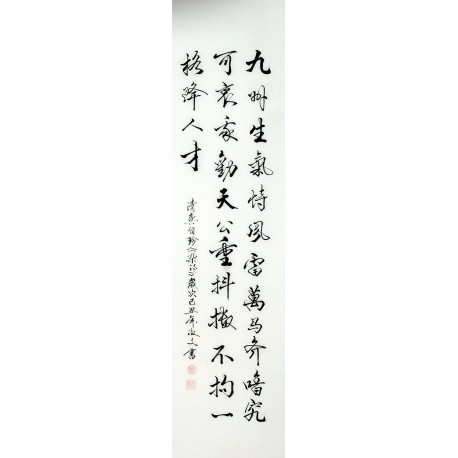 九州生氣恃風雷萬马齐喑究
可哀我勸天公重抖擻不拘一
格降人才
清龔自珍《杂诗》歲次己丑年文書